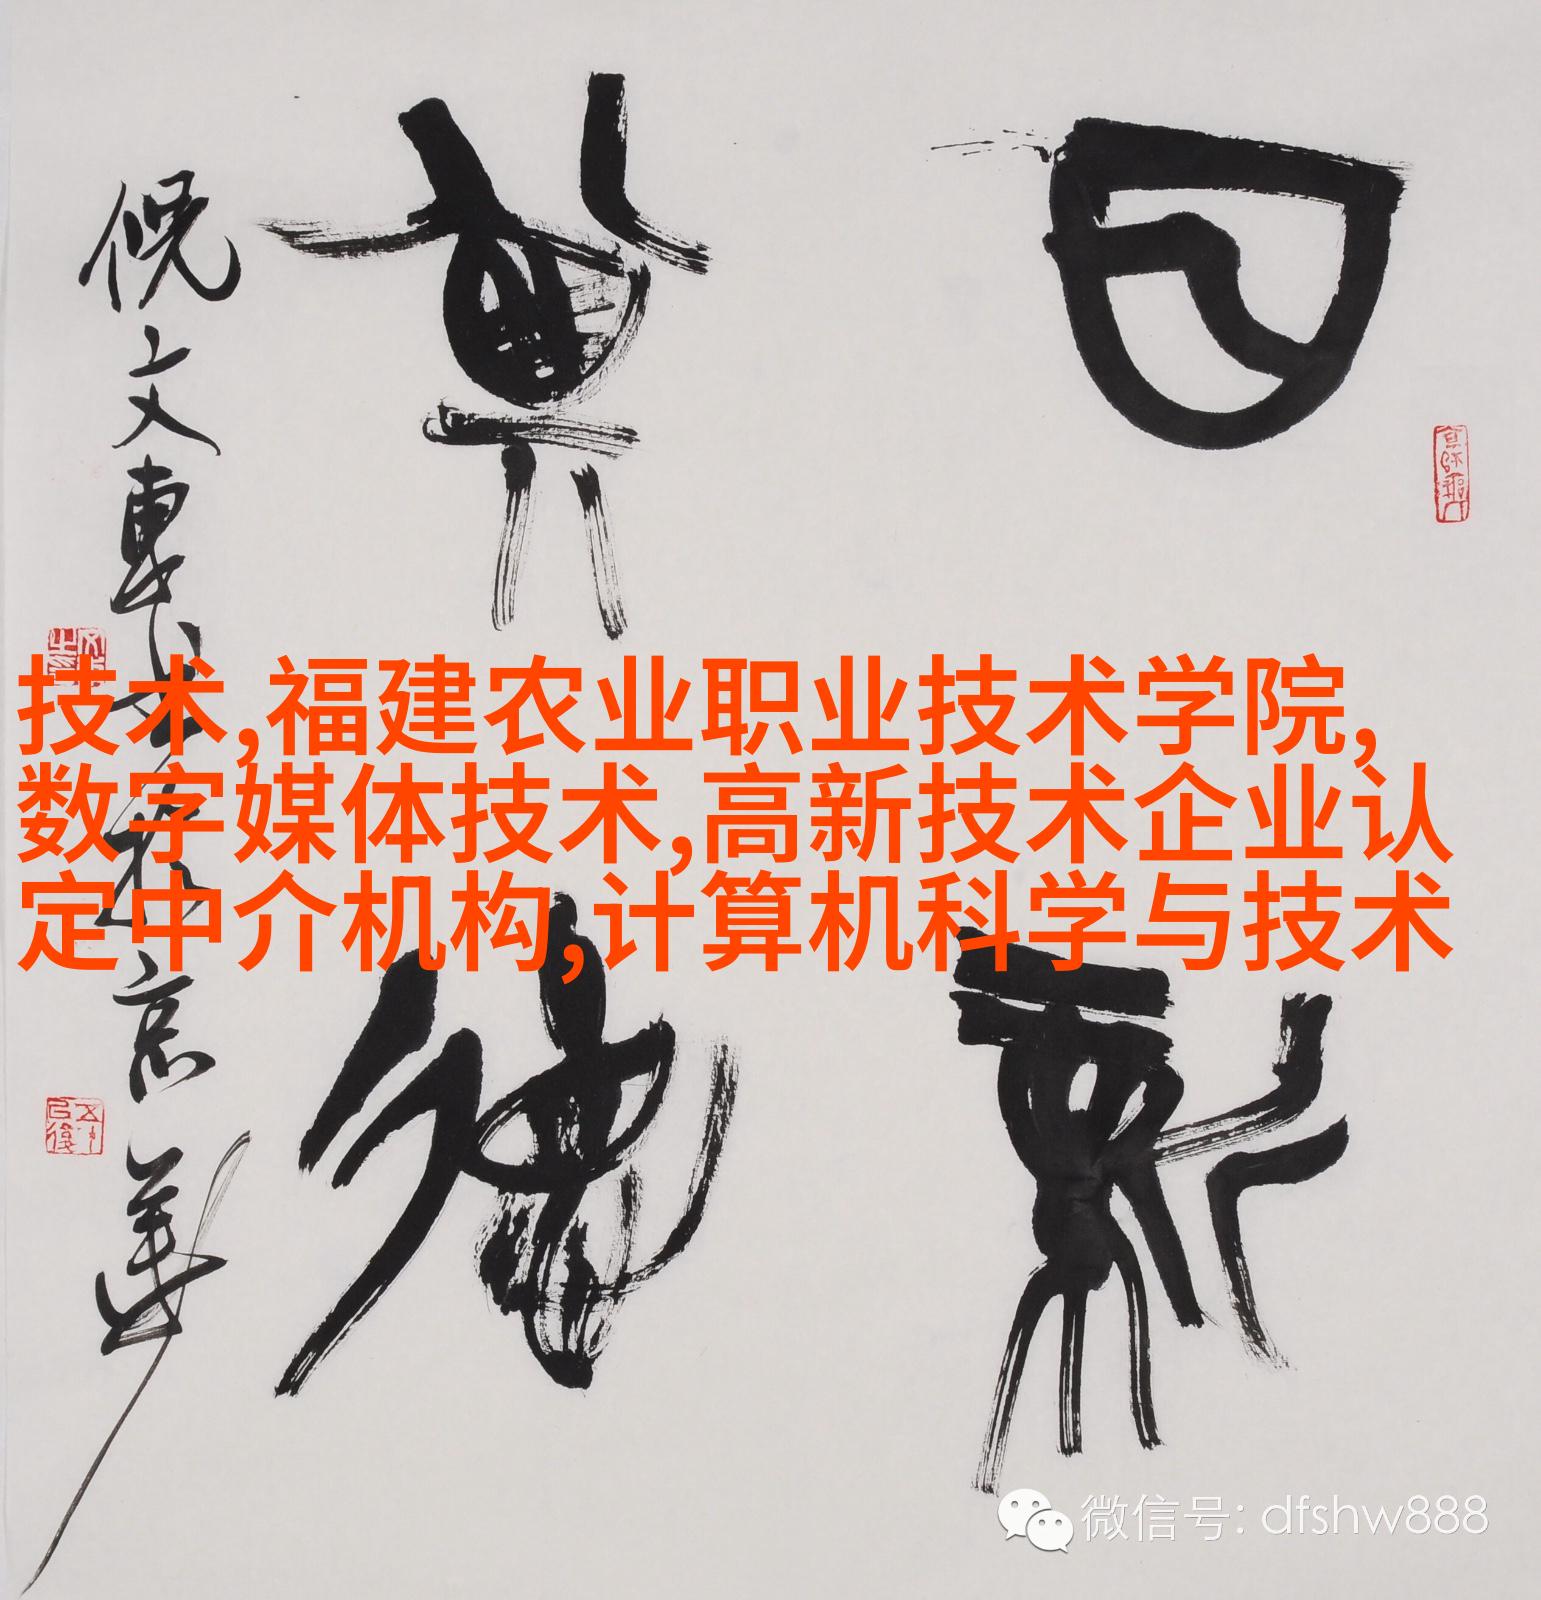 日新
其德
倪文東書於京華
技术,福建农业职业技术学院,
数字媒体技术,高新技术企业认
定中介机构,计算机科学与技术
微信号: dfshw888